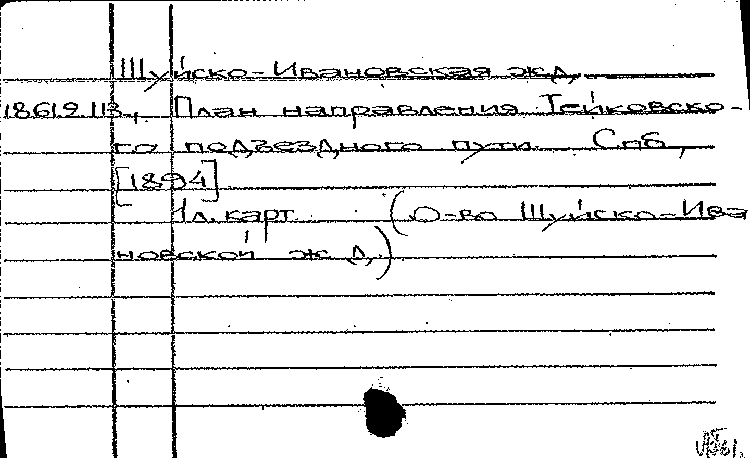 Шуйско-Ивановская ж.д.
18619.113, План направления Тейковско-
го подъездного пути. Спб,
[1894]
1л. карт. (О-во Шуйско-Ива
новской ж.д.)